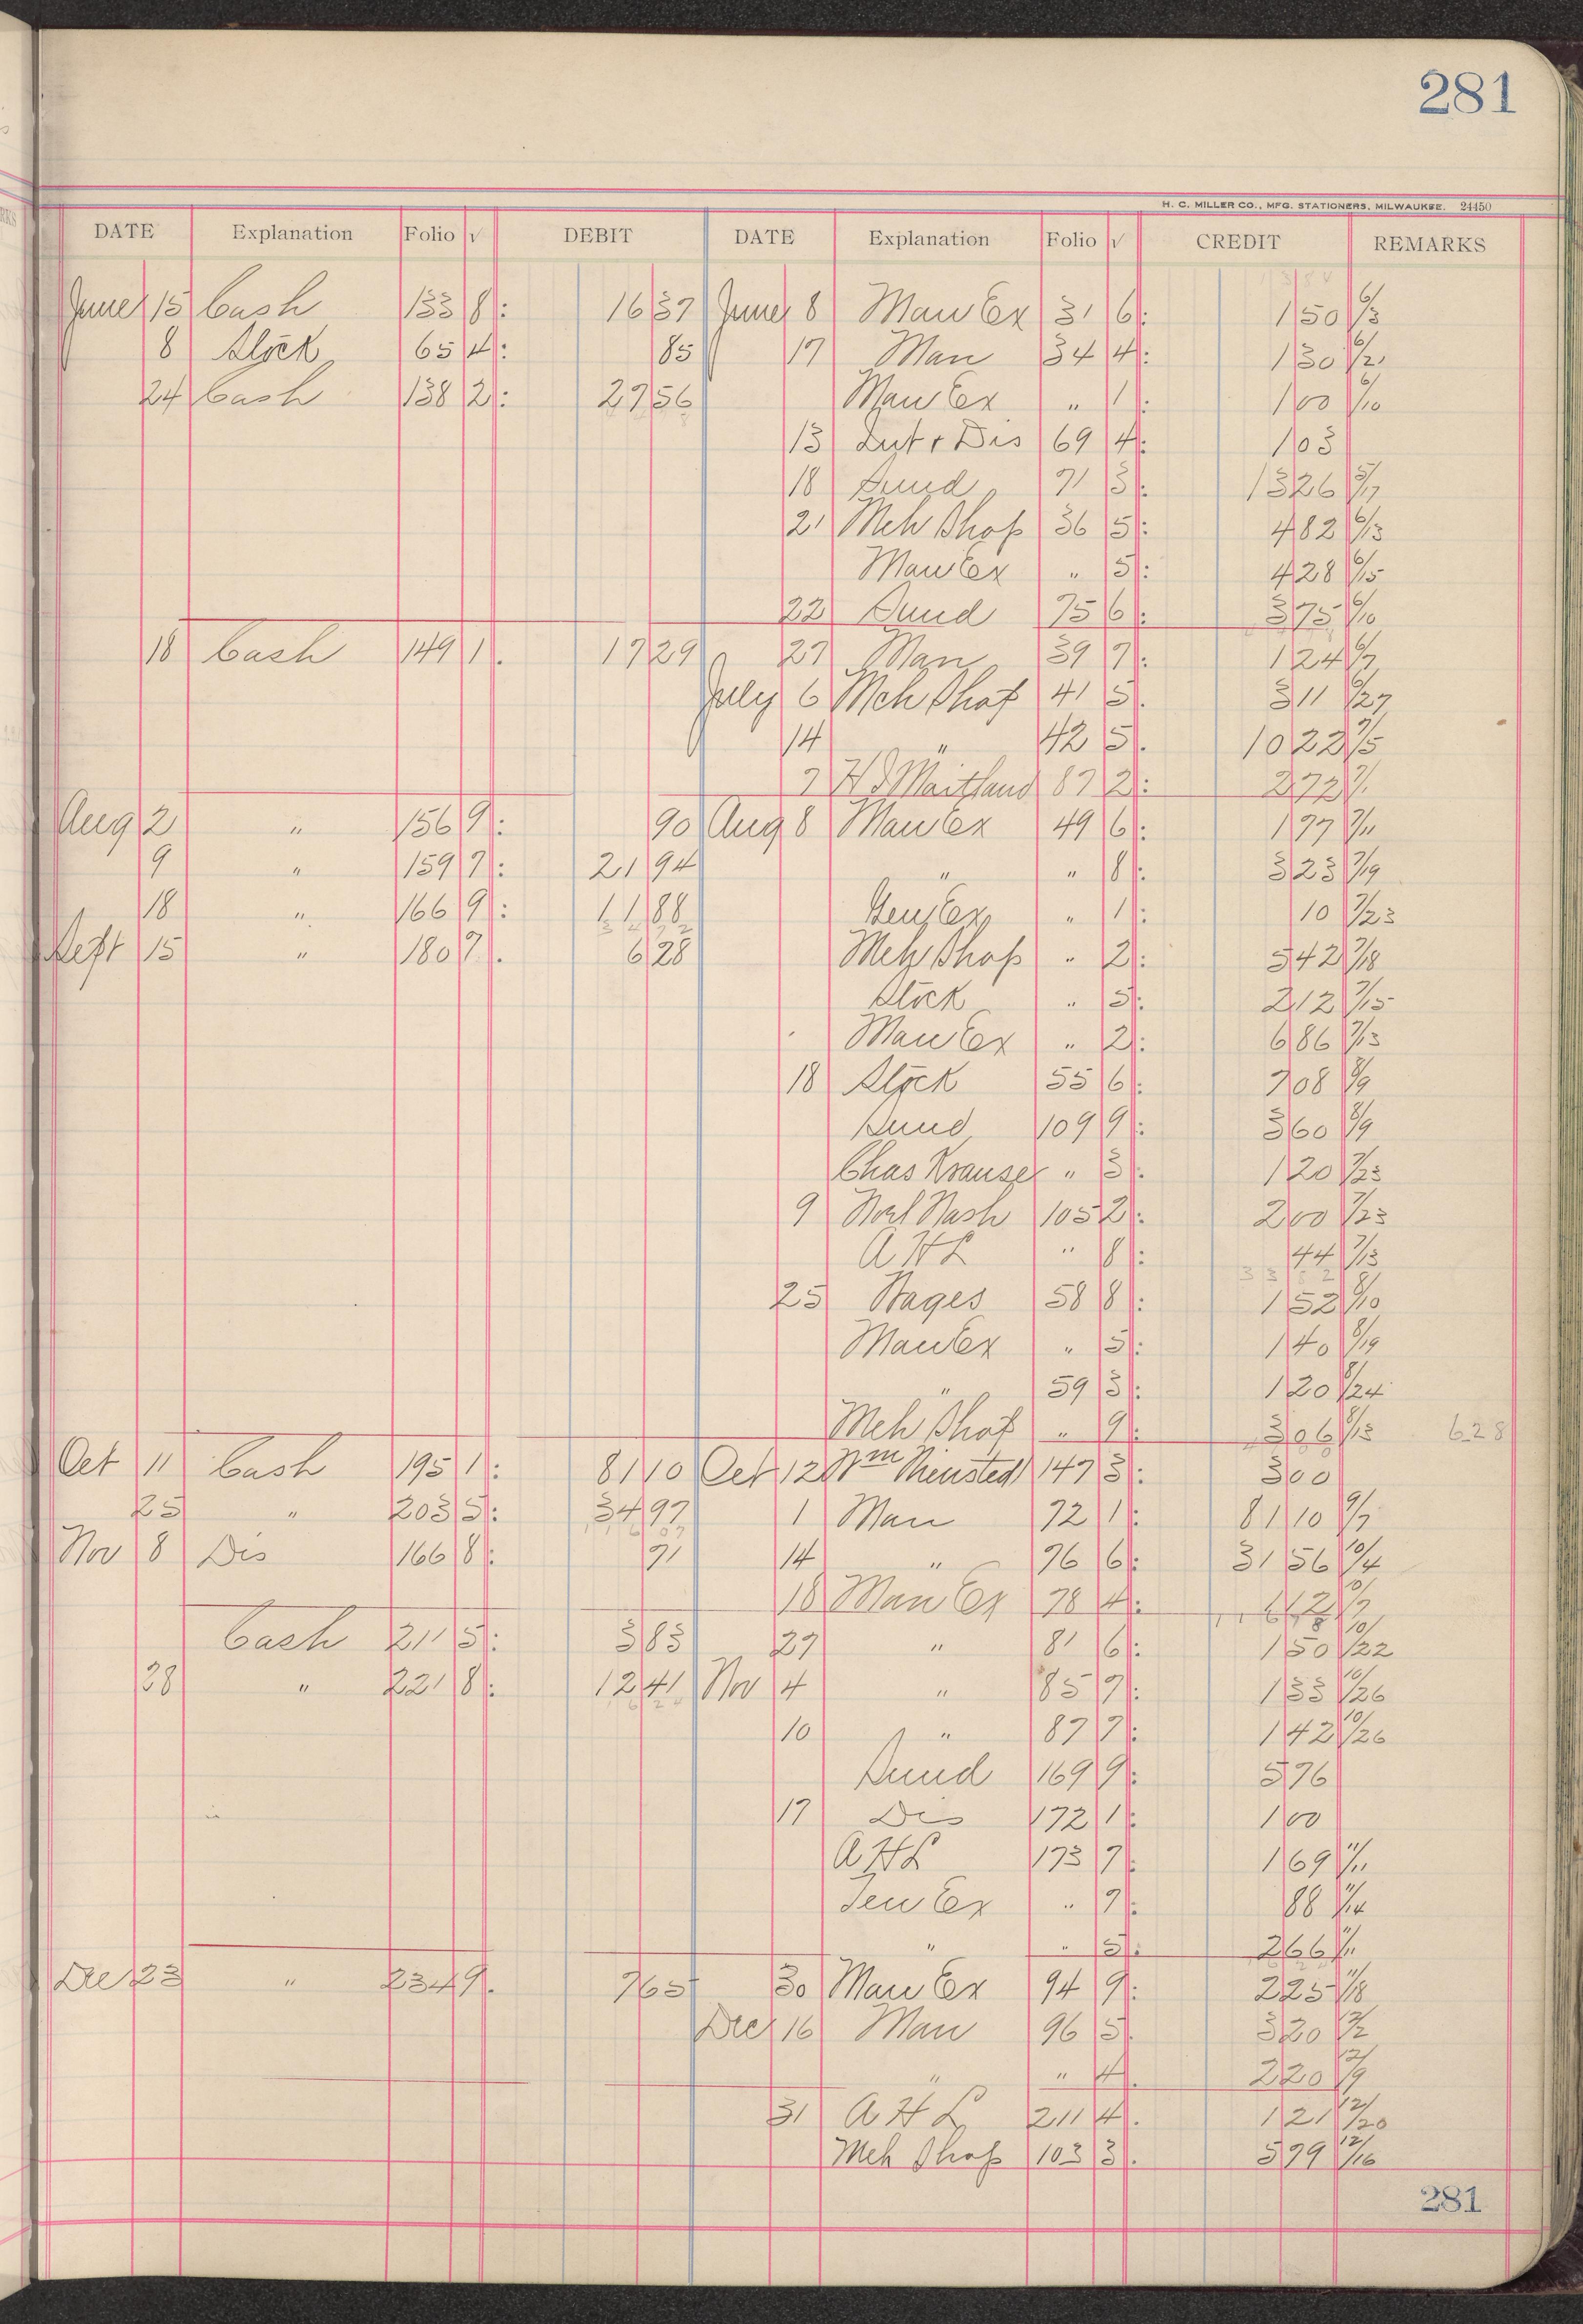 281
H. C. MILLER CO., MFG. STATIONERS, MILWAUKEE. 24450
DATE Explanation Folio √ DEBIT DATE Explanation Folio √ CREDIT REMARKS
June 15 Cash 133 8 : 16 37 June 8 Man Ex 31 6 : 1 50 6/3
8 Stock 65 4 : 85 17 Man 34 4 : 1 30 6/2
24 Cash 138 2 : 27 56 Man Ex " 1 : 1 00 6/10
13 Int + Dis 69 4 : 1 03
18 Sund 71 3 : 13 26 5/17
21 Mch Shop 36 5 : 4 82 6/13
Man Ex " 5 : 4 28 6/15
22 Sund 75 6 : 3 75 6/10
18 Cash 149 1 . 17 29 27 Man 39 7 : 1 24 6/7
July 6 Mch Shop 41 5 . 3 11 6/27
14 " 42 5 . 10 22 7/5
7 Maitland 87 2 : 2 72 7/1
Aug 2 " 156 9 : 90 Aug 8 Man Ex 49 6 : 1 77 7/11
9 " 159 7 : 21 94 " " 8 : 3 23 7/19
18 " 166 9 : 11 88 Gen Ex " 1 : 10 7/23
Sept 15 " 180 7 . 6 28 Mch Shop " 2 : 5 42 7/18
Stock " 5 : 2 12 7/15
Man Ex " 2 : 6 86 7/13
18 Stock 55 6 : 7 08 8/9
Sund 109 9 : 3 60 8/9
Chas Krause " 3 : 1 20 7/23
9 Nash 105 2 : 2 00 7/23
A H L " 8 : 44 7/13
33 82
25 Wages 58 8 : 1 52 8/10
Man Ex " 5 : 1 40 8/19
" 59 3 : 1 20 8/24
Mch Shop " 9 : 3 06 8/13 628
Oct 11 Cash 195 1 : 81 10 Oct 12 Wm Niensted 147 3 : 3 00
25 " 203 5 : 34 97 1 Man 72 1 : 81 10 9/7
Nov 8 Dis 166 8 : 71 14 " 76 6 : 31 56 10/4
18 Man Ex 78 4 : 6 12 10/7
Cash 211 5 : 3 83 27 " 81 6 : 1 50 10/22
28 " 221 8 : 12 41 Nov 4 " 85 9 : 1 33 10/26
10 " 87 7 : 1 42 10/26
Sund 169 9 : 5 76
17 Dis 172 1 : 1 00
A H L 173 7 : 1 69 11/11
Gen Ex " 7 : 88 11/14
" " 5 : 2 66 11/11
Dec 23 " 234 9 . 7 65 30 Man Ex 94 9 : 2 25 11/18
Dec 16 Man 96 5 . 3 20 12/2
" " 4 . 2 20 12/9
31 A H L 211 4 . 1 21 12/20
Mch Shop 103 3 . 5 79 12/16
281